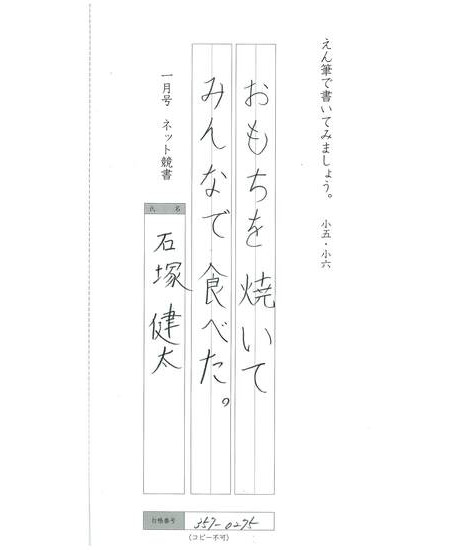 えん筆で書いてみましょう。 小五・小六
おもちを焼いて
みんなで食べた。
一月号 ネット競書
氏 名
石塚健太
合格番号 357-0275
(コピー不可)